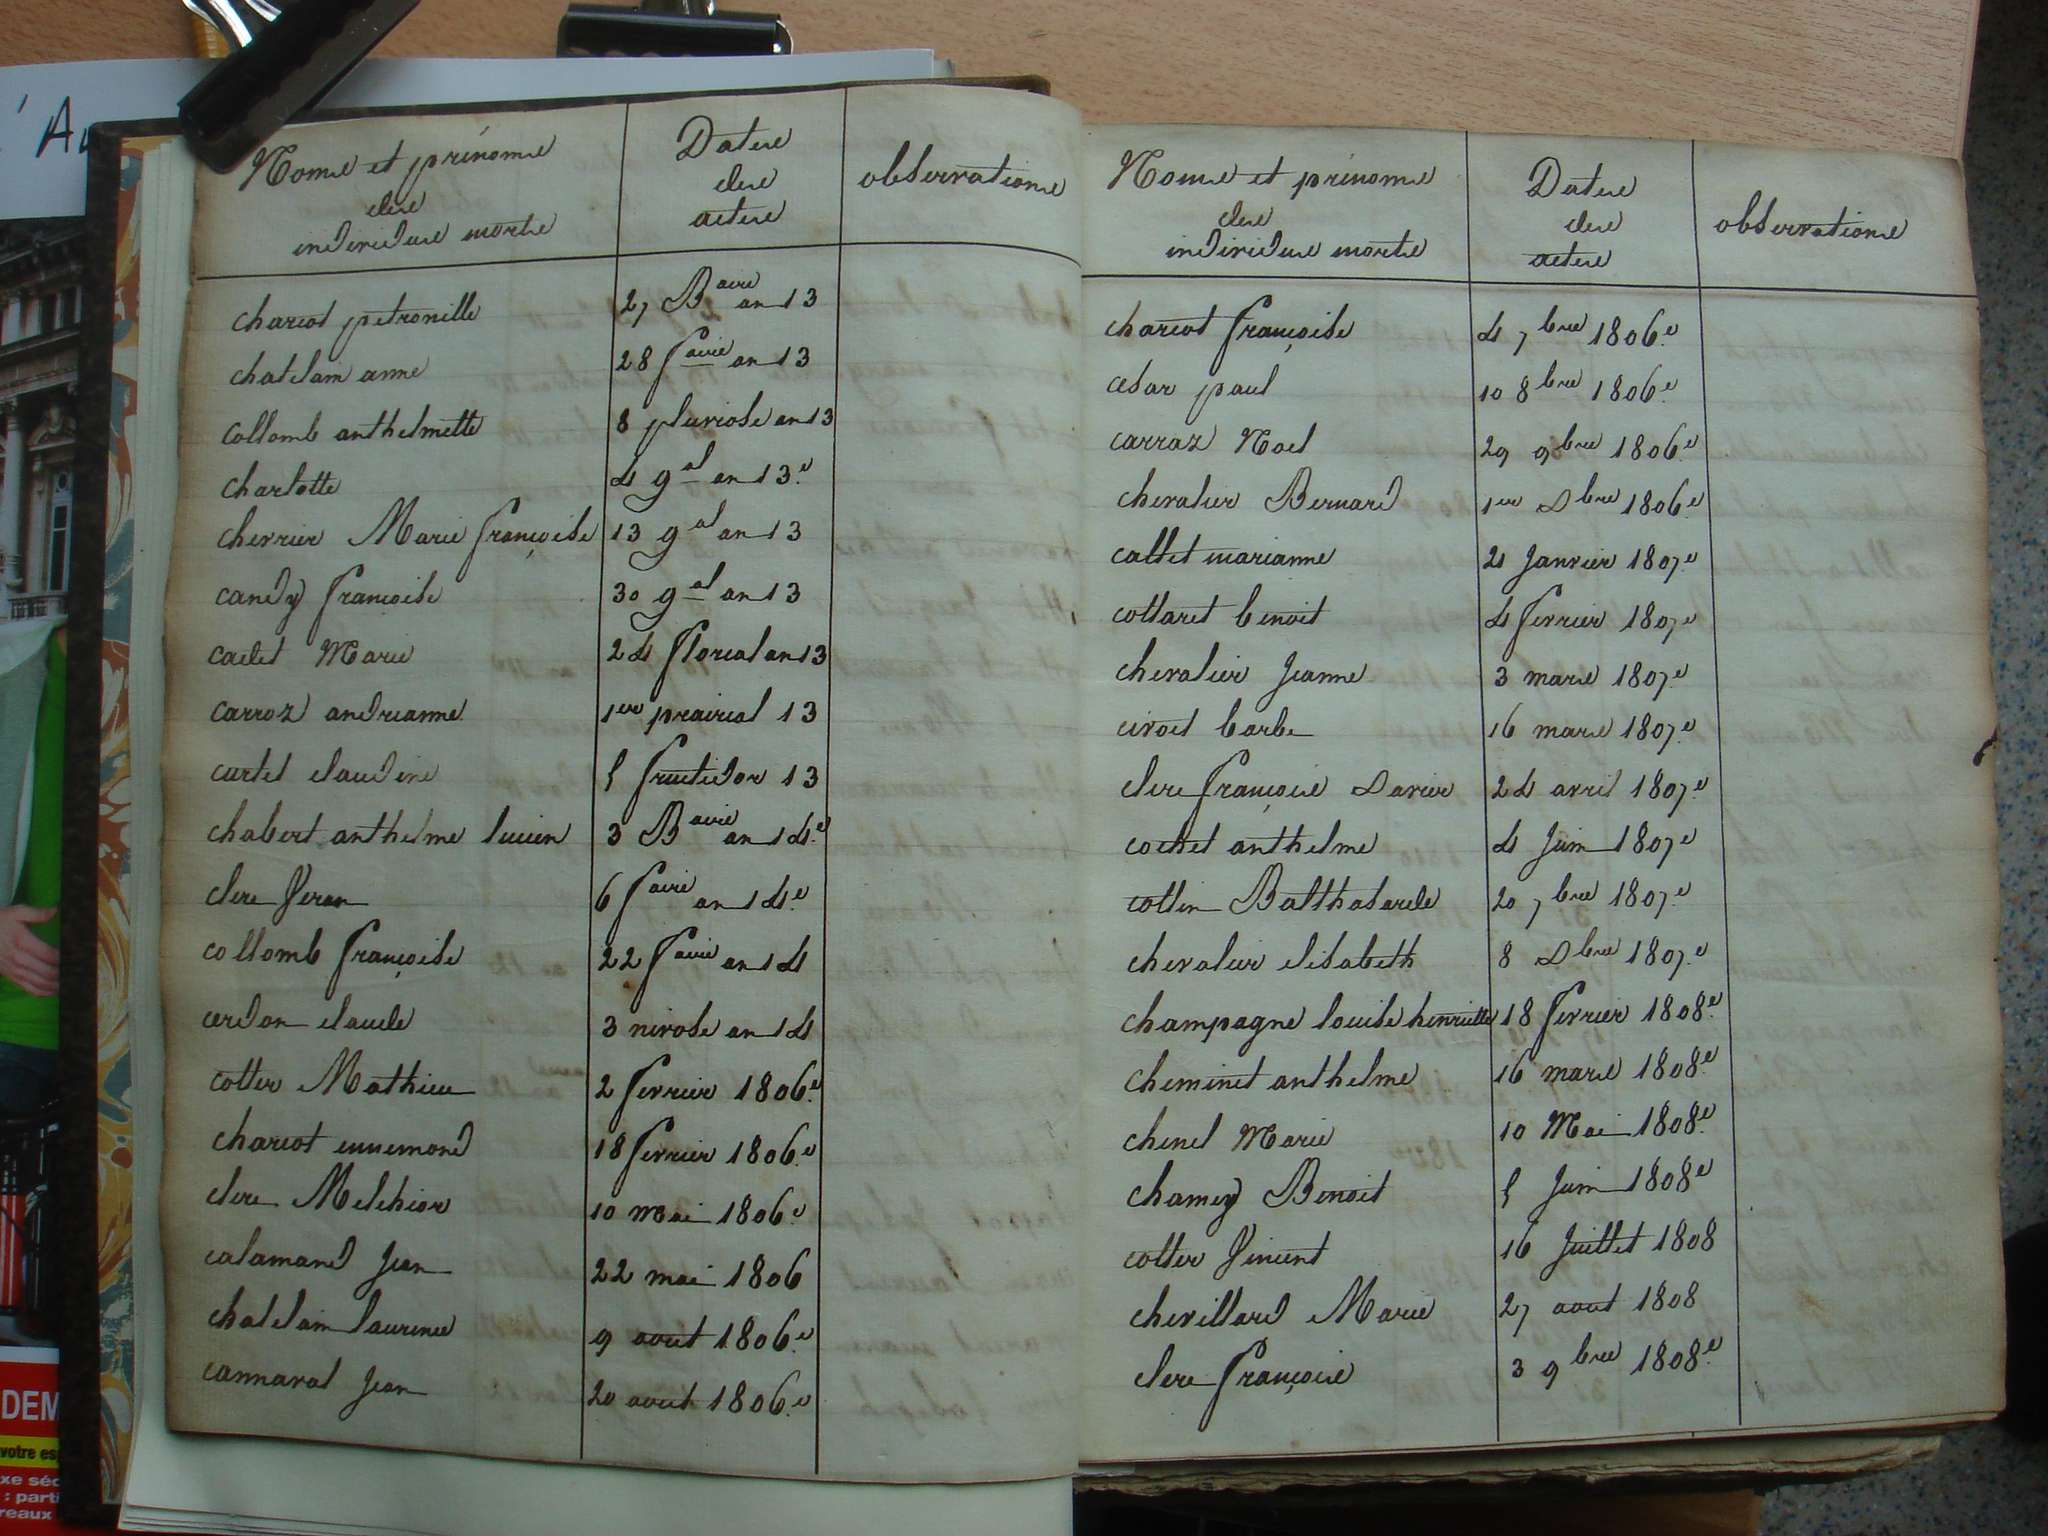 l'Au
Noms et prénoms
des
individus morts
Dates
des
actes
observations
chariot petronille 27 Baire an 13
chatelain anne 28 faire an 13
collomb anthelmette 8 pluviose an 13
charlotte 4 gal an 13.e
chevrier Marie françoise 13 gal an 13
candy françoise 30 gal an 13
cadet Marie 24 floreal an 13
carroz andrianne 1er prairial 13
curtet claudine 5 fructidor 13
chabert anthelme lucien 3 Baire an 14.e
clerc Veran 6 faire an 14.e
collomb françoise 22 faire an 14
cerdon claude 3 nivose an 14
cotter Mathieu 2 fevrier 1806.e
chariot ennemond 18 fevrier 1806.e
clerc Melchior 10 mai 1806.e
calamand jean 22 mai 1806
chatelain laurence 9 aout 1806.e
cannaval jean 20 aout 1806.e
Noms et prénoms
des
individus morts
Dates
des
actes
observations
chariot françoise 4 7bre 1806.e
cesar paul 10 8bre 1806.e
carraz Noel 29 9bre 1806.e
chevalier Bernard 1er Dbre 1806.e
caltet marianne janvier 1807.e
collaret benoit 4 fevrier 1807.e
chevalier jeanne 3 mars 1807.e
civoct barbe 16 mars 1807.e
clerc françois Xavier 24 avril 1807.e
cochet anthelme 4 juin 1807.e
collin Balthasarde 20 7bre 1807.e
chevalier elisabeth 8 Dbre 1807.e
champagne louise henriette 18 fevrier 1808.e
cheminet anthelme 16 mars 1808.e
chenel Marie 10 Mai 1808.e
chamey Benoit 5 juin 1808.e
cotter Vincent 16 juillet 1808
chevillard Marie 27 aout 1808
clerc françois 3 9bre 1808.e
DEM
votre es
xe séc
: parti
reaux